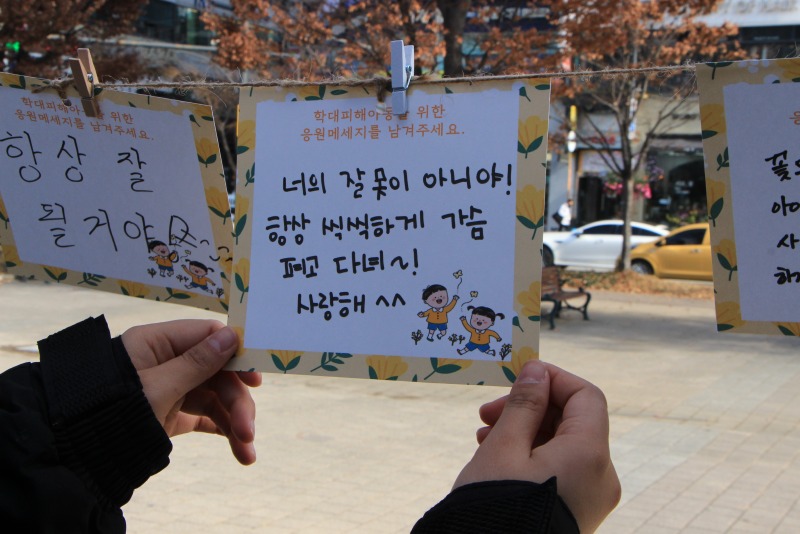 학대피해아동을 위한
응원메세지를 남겨주세요.
항상 잘
될거야
학대피해아동을 위한
응원메세지를 남겨주세요.
너의 잘못이 아니야!
항상 씩씩하게 가슴
펴고 다녀~!
사랑해 ^^
꽃으
아이
사
하지